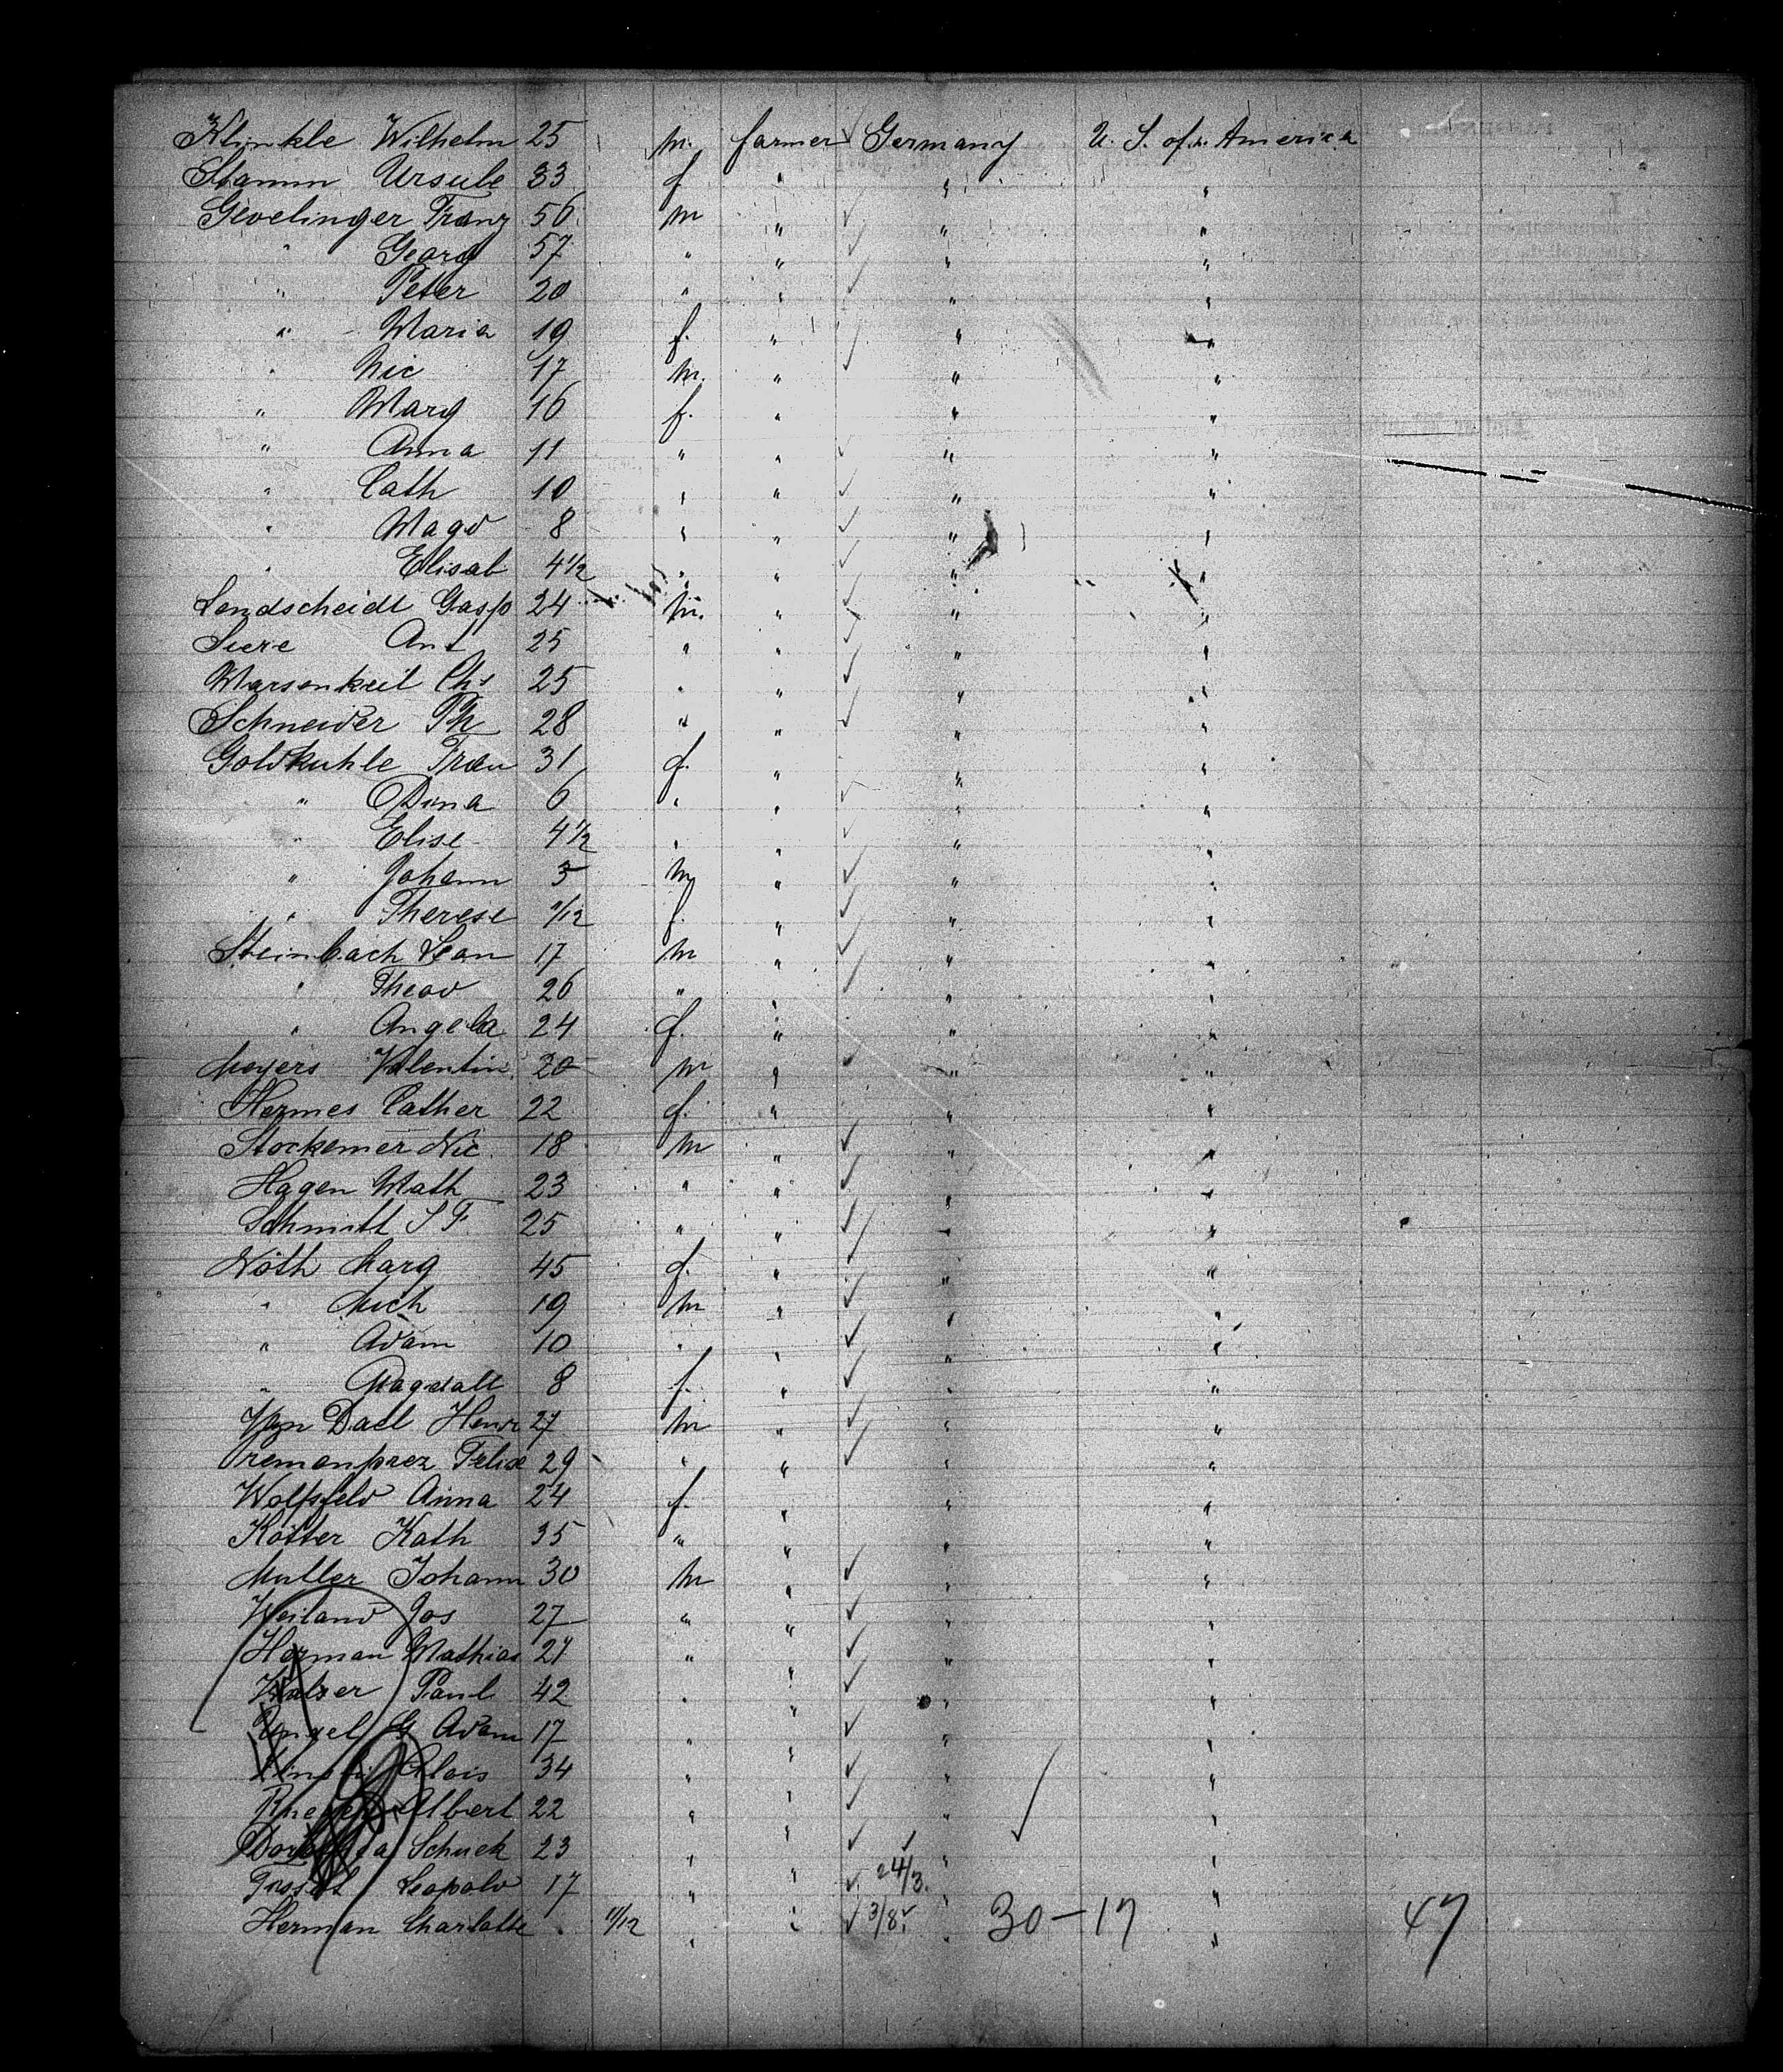 Klinkle Wilhelm 25 m. farmer Germany U. S. of. America
Stamm Ursule 33 f " " "
Gevelinger Franz 56 m " " "
" Georg 57 " " " "
" Peter 20 " " " "
" Maria 19 f. " " "
" Nic 17 m. " " "
" Marg 16 f. " " "
" Anna 11 " " " "
" Cath 10 " " " "
" Magd 8 " " " "
" Elisab 4 1/2 " " " "
Landscheidt Gasp 24 m. " " "
Ant 25 " " " "
Marsenkeil Chs 25 " " " "
Schneider Ph 28 " " " "
Goldkuhle Frau 31 f. " " "
" Dina 6 " " " "
" Elise 4 1/2 " " " "
" Johann 3 m " " "
" Therese /12 f. " " "
Steinbach Jean 17 m " " "
" Theod 26 " " " "
" Angela 24 f. " " "
Meyers Valentin 20 m " " "
Hermes Cather 22 f. " " "
Stockemer Nic. 18 m " " "
Hagen Math 23 " " " "
Schmitt S F. 25 " " " "
Nöth Marg 45 f. " " "
" Mich 19 m " " "
" Adam 10 " " " "
" Magdalt 8 f. " " "
Van Dael Henri 27 m " " "
Premonprez Felix 29 " " " "
Wolfsfeld Anna 24 f. " " "
Kötter Kath 35 " " " "
Muller Johann 30 m " " "
Weiland Jos 27 " " " "
Herman Mathias 27 " " " "
Walser Paul 42 " " " "
Engel G Adam 17 " " " "
Alois 34 " " " "
Albert 22 " " " "
Dorothea Schuck 23 " " " "
Leopold 17 " " 24/3. "
Herman Charlotte 11/12 " " 3/8. 30-17 " 47